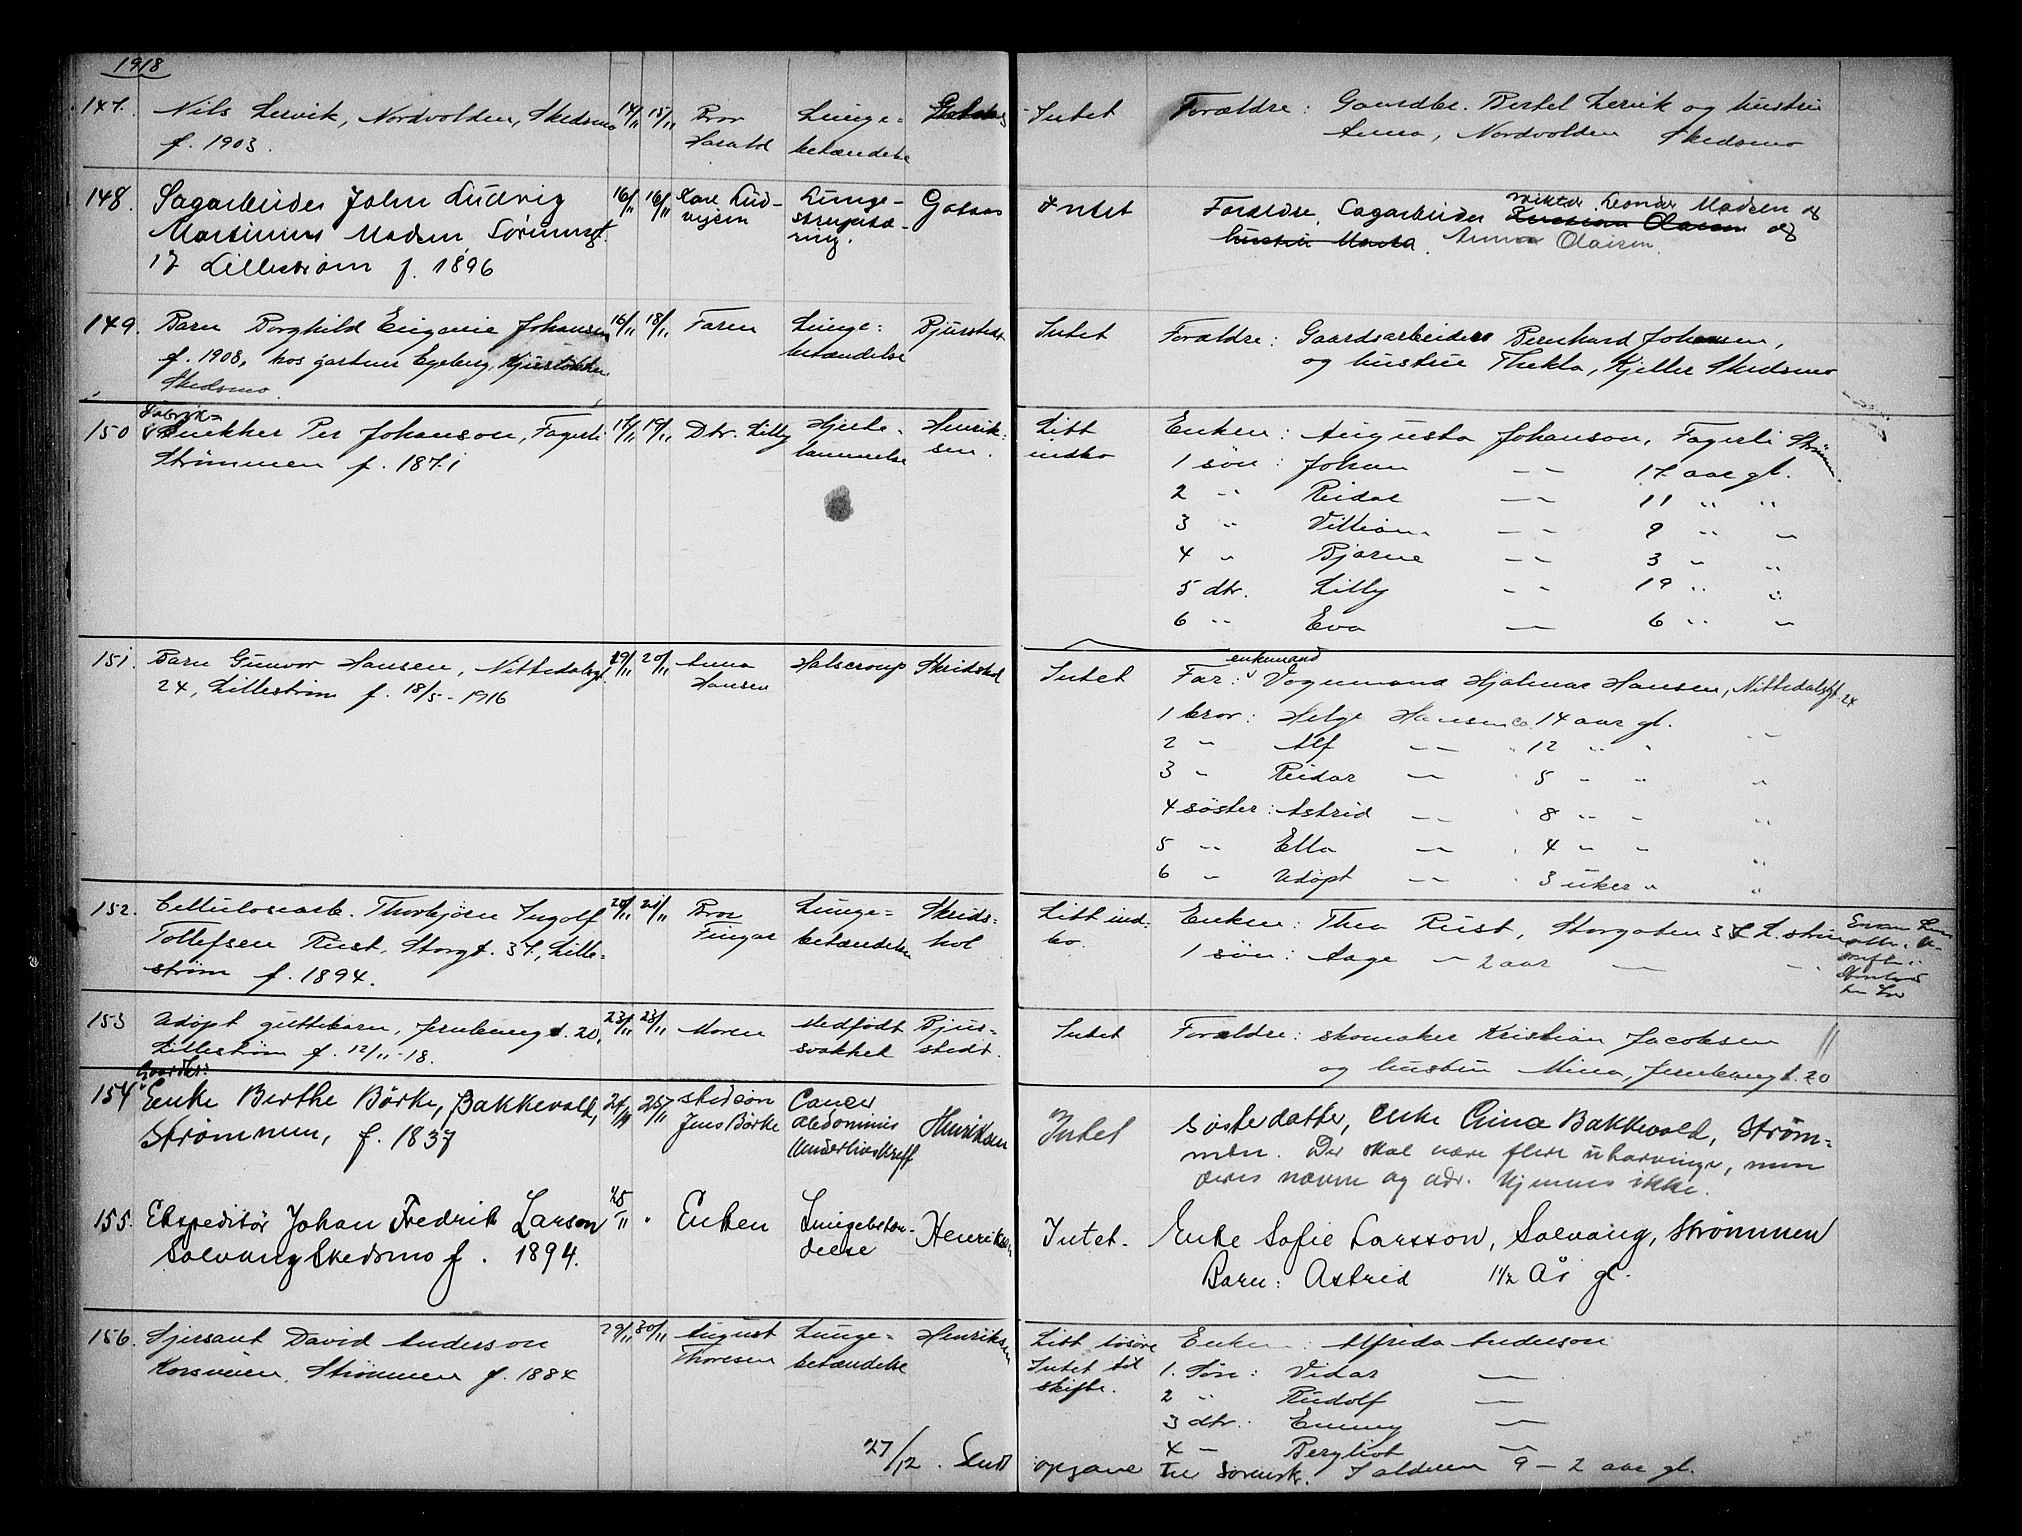 1918
147. Nils Lervik, Nordvolden, Skedsmo 14/11 15/11 Bror Lunge= Intet Forældre: Gaardbr. Bertel Lervik og hustru
f. 1903. Harald betændelse Anna, Nordvolden Skedsmo
148. Sagarbeider John Ludvig 16/11 16/11 Karl Lud- Lunge- Gotaas Intet Forældre, Sagarbeider Viktor Leonder Madsen og
Martinius Madsen, Sørumsgt. vigsen og hustru Marta. Anna Olaisen.
17 Lillestrøm f. 1896
149. Barn Borghild Eugenie Johansen 16/11 18/11 Faren Lunge= Bjurstedt Intet Forældre: Gaardsarbeider Bernhard Johansen,
f. 1908, hos gartner Egeberg, betændelse og hustru Thekla, Kjeller Skedsmo
Skedsmo.
Fabrik-
150 snekker Per Johanson, Fagerli 17/11 19/11 Dtr. Lilly Hjerte- Henrik- Litt Enken: Augusta Johanson, Fagerli Strømmen.
Strømmen f. 1871 lammelse sen. indbo 1 søn: Johan — 17 aar gl.
2 " Reidar — 11 " "
3 " Villiam — 9 " "
4 " Bjarne — 3 " "
5 dtr. Lilly — 19 " "
6 " Eva — 6 " "
enkemand
151. Barn Gunvor Hansen, Nittedalsgt. 19/11 20/11 Anna Halscroup Skridshol Intet Far: Vognmand Hjalmar Hansen, Nittedalsgt. 24
24, Lillestrøm f. 18/5 - 1916 Hansen
1 bror: Helge Hansen ca. 14 aar gl.
2 " Alf — 12 " "
3 " Reidar — 5 " "
4 søster: Astrid — 8 " "
5 " Ella — 4 " "
6 " Udøpt — 3 uker " "
152. Cellulosearb. Thorbjørn Ingolf 20/11 21/11 Bror Lunge= Skrids= Litt ind. Enken: Thea Rust, Storgaten 37 L.strøm
Tollefsen Rust, Storgt. 37, Lille= Fingar betændelse hol bo. 1 søn: Aage — 2 aar —
strøm f. 1894.
153 Udøpt guttebarn, Jernbanegt. 20, 23/11 23/11 Moren Medfødt Bjur= Intet Forældre: skomaker Kristian Jacobsen
Lillestrøm f. 12/11-18. svakhet stedt. og hustru Mina, Jernbanegt. 20
Gaardbr.
154 Enke Berthe Børke, Bakkevold, 24/11 25/11 stedsøn Cancer Henriksen Intet Søsterdatter, enke Gina Bakkevold, Strøm=
Strømmen, f. 1837 Jens Børke abdominis men. Der skal være flere utarvinger, men
(Underlivskreft deres navn og adr. kjennes ikke.
155. Ekspeditør Johan Fredrik Larson 25/11 " Enken Lungebetæn- Henriksen Intet. Enke Sofie Larsson, Solvang, Strømmen
Solvang Skedsmo f. 1894. delse Barn: Astrid 1 1/2 År gl.
156. Sjersant David Anderson 29/11 30/11 August Lunge= Henriksen Litt løsøre Enken: Alfrida Anderson
Korsveien, Strømmen f. 1884 Thoresen betændelse Intet til 1. Søn: Vidar —
skifte. 2 " Rudolf —
3 dtr: Emmy —
4 — Bergliot —
27/12. Sendt opgave til Sorenskr. I alderen 9 - 2 aar gl.